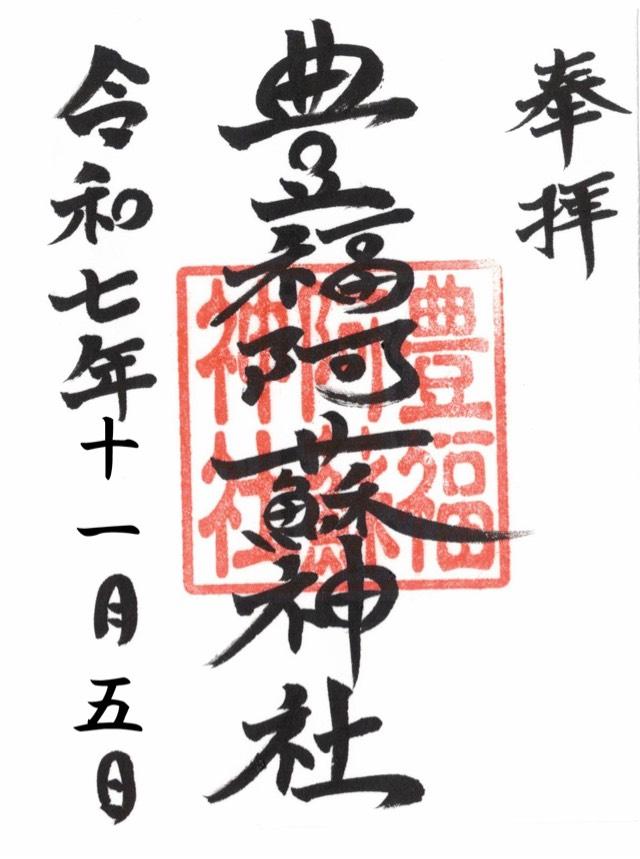 奉拝
豊福阿蘇神社
豊福
阿蘇
神社
令和七年十一月五日